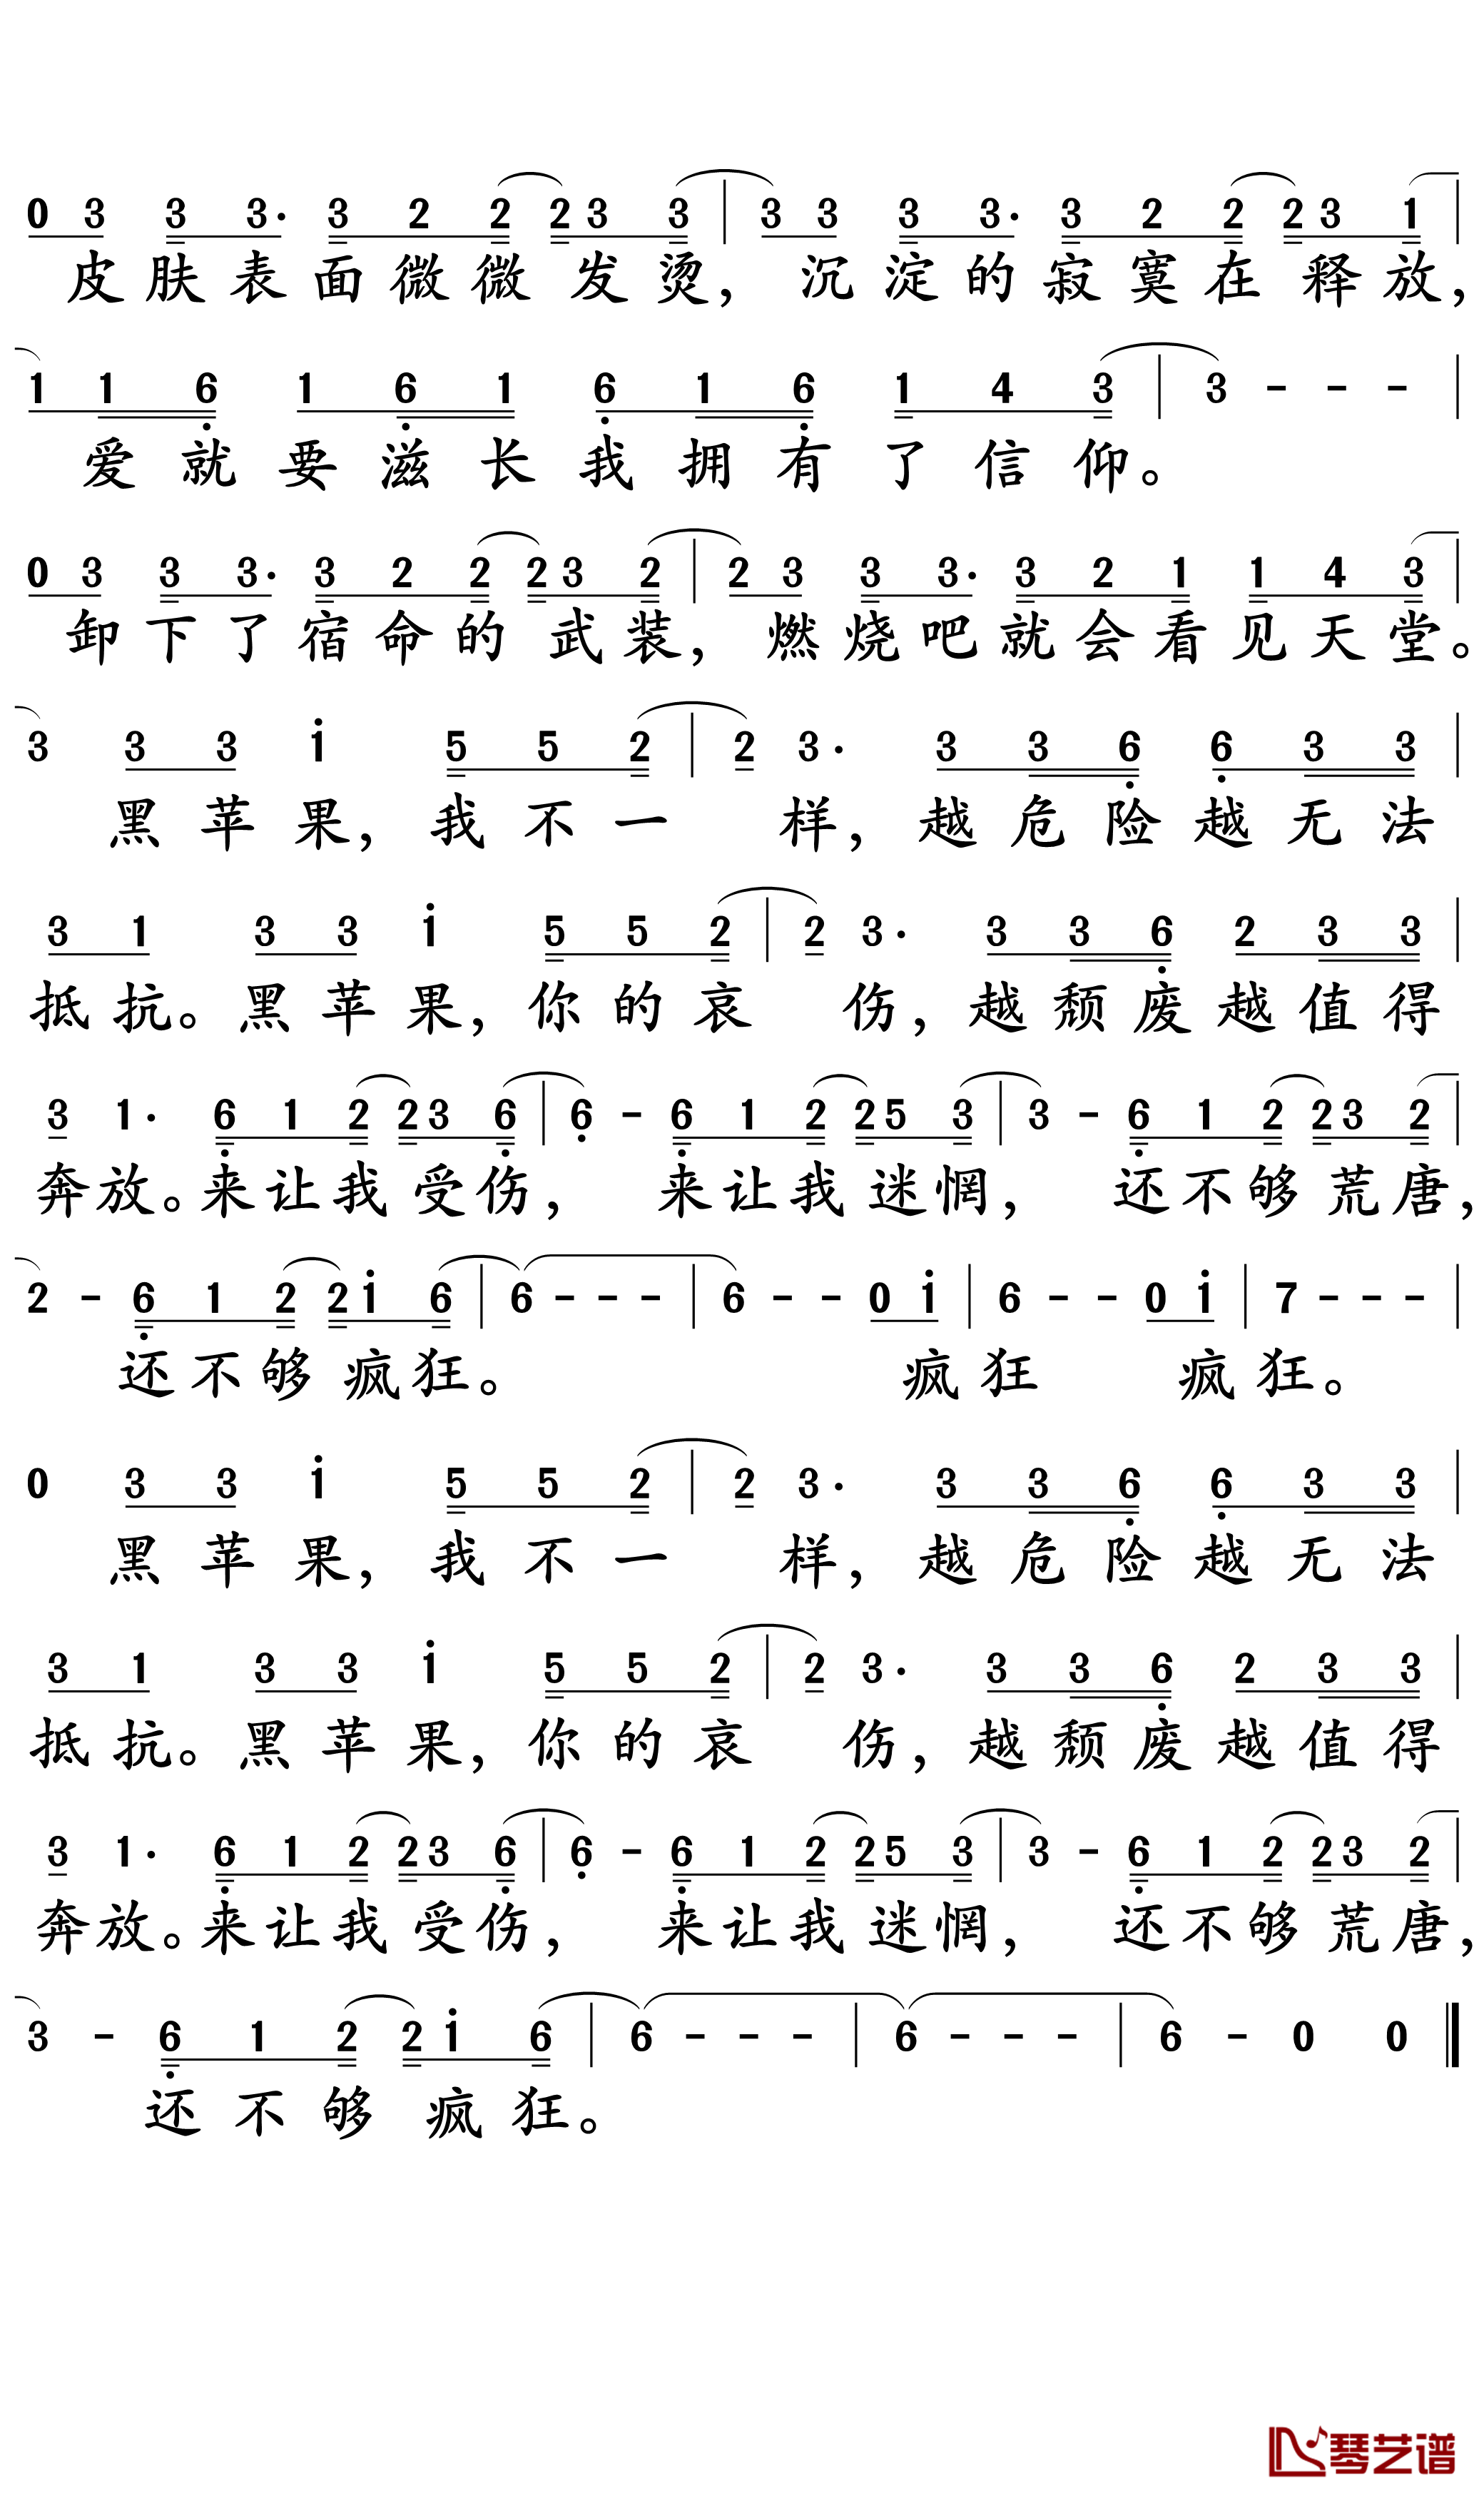 0 3 3 3· 3 2 2 2 3 3 | 3 3 3 3· 3 2 2 2 3 1 |
皮肤表面微微发烫，沉淀的羲要在释放，
1 1 6 1 6 1 6 1 6 1 4 3 | 3 - - - |
爱就要滋长我拥有了信仰。
0 3 3 3· 3 2 2 2 3 2 | 2 3 3 3· 3 2 1 1 4 3 |
卸下了宿命的武装，燃烧吧就会看见天堂。
3 3 3 i 5 5 2 | 2 3· 3 3 6 6 3 3 |
黑苹果，我不一样，越危险越无法
3 1 3 3 i 5 5 2 | 2 3· 3 3 6 2 3 3 |
抵抗。黑苹果，你的哀伤，越颓废越值得
3 1· 6 1 2 2 3 6 | 6 - 6 1 2 2 5 3 | 3 - 6 1 2 2 3 2 |
奔放。来让我受伤，来让我迷惘，还不够荒唐，
2 - 6 1 2 2 i 6 | 6 - - - | 6 - - 0 i | 6 - - 0 i | 7 - - - |
还不够疯狂。疯狂疯狂。
0 3 3 i 5 5 2 | 2 3· 3 3 6 6 3 3 |
黑苹果，我不一样，越危险越无法
3 1 3 3 i 5 5 2 | 2 3· 3 3 6 2 3 3 |
抵抗。黑苹果，你的哀伤，越颓废越值得
3 1· 6 1 2 2 3 6 | 6 - 6 1 2 2 5 3 | 3 - 6 1 2 2 3 2 |
奔放。来让我受伤，来让我迷惘，还不够荒唐，
3 - 6 1 2 2 i 6 | 6 - - - | 6 - - - | 6 - 0 0
还不够疯狂。
琴艺谱